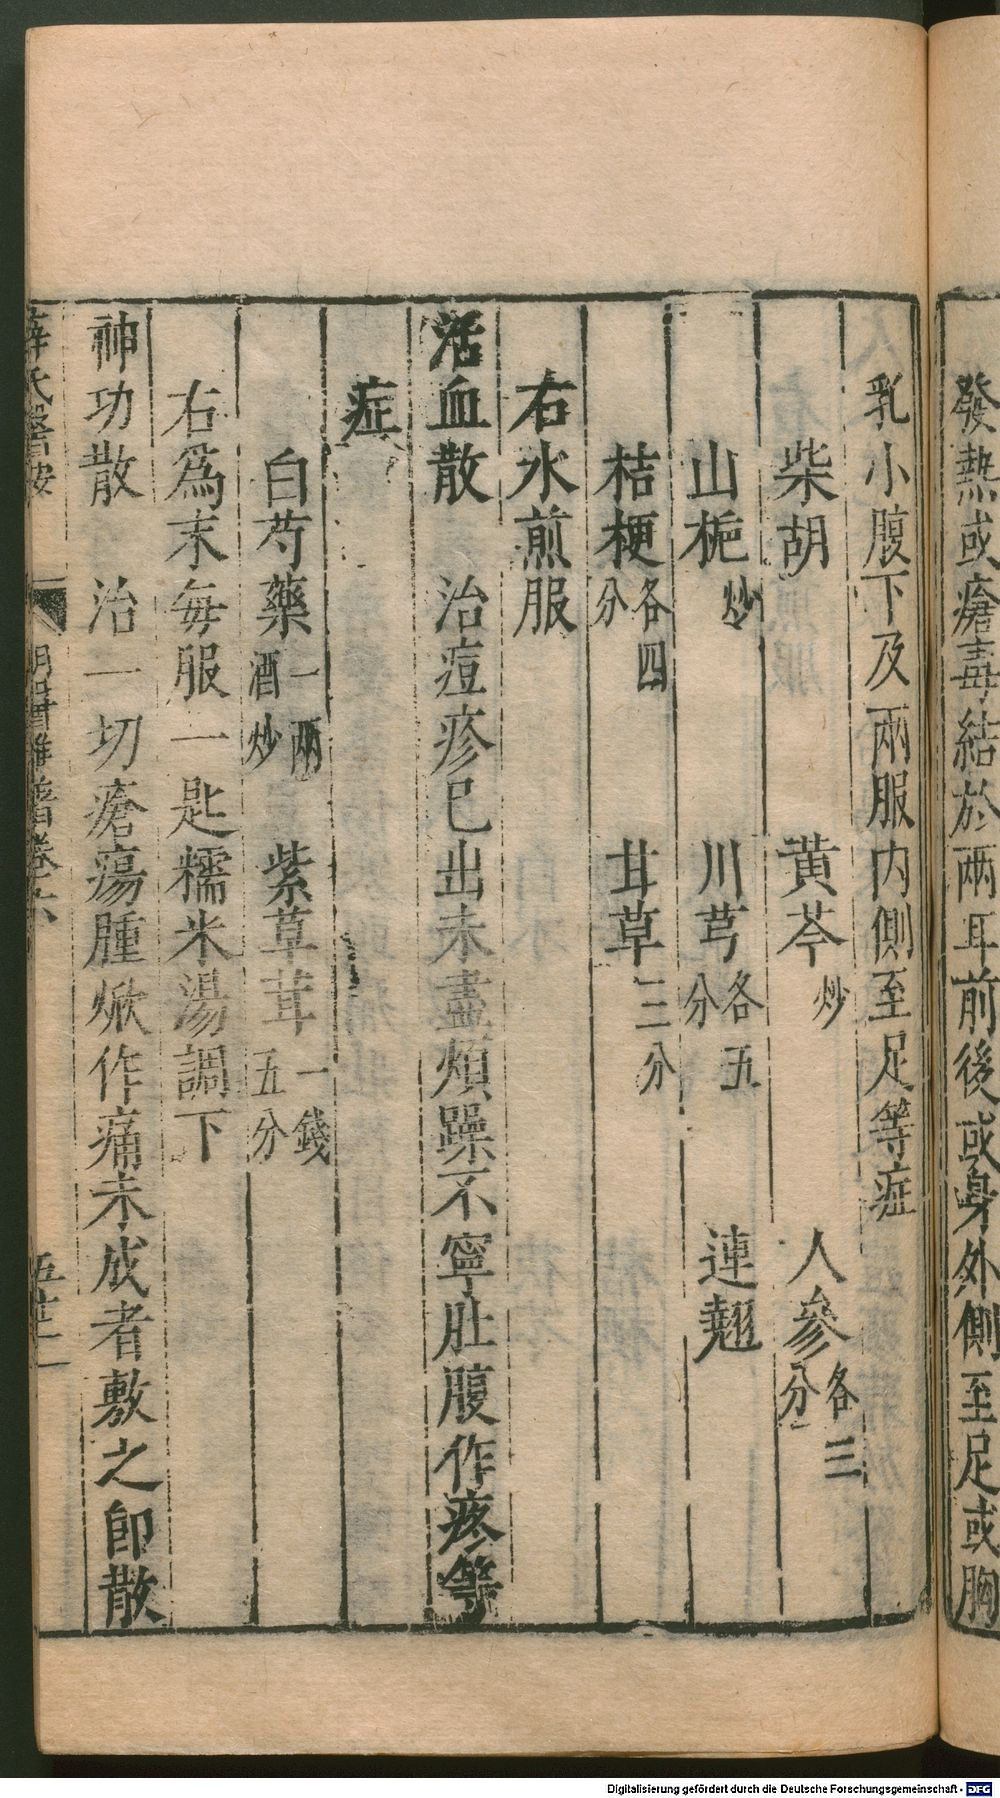 發熱或瘡毒結於两耳前後或身外側至足或胸
乳小腹下及兩服内側至足等症
柴胡 黄芩炒 人參各三分
山梔炒 川芎各五分 連翹
桔梗各四分 甘草三分
右水煎服
活血散 治痘疹已出未盡煩躁不寧肚腹作疼等
症
白芍藥一兩酒炒 紫草茸一錢五分
右爲末每服一匙糯米湯調下
神功散 治一切瘡瘍腫焮作痛未成者敷之即散
薛氏醫按 明醫雜著卷六
Digitalisierung gefördert durch die Deutsche Forschungsgemeinschaft - DFG